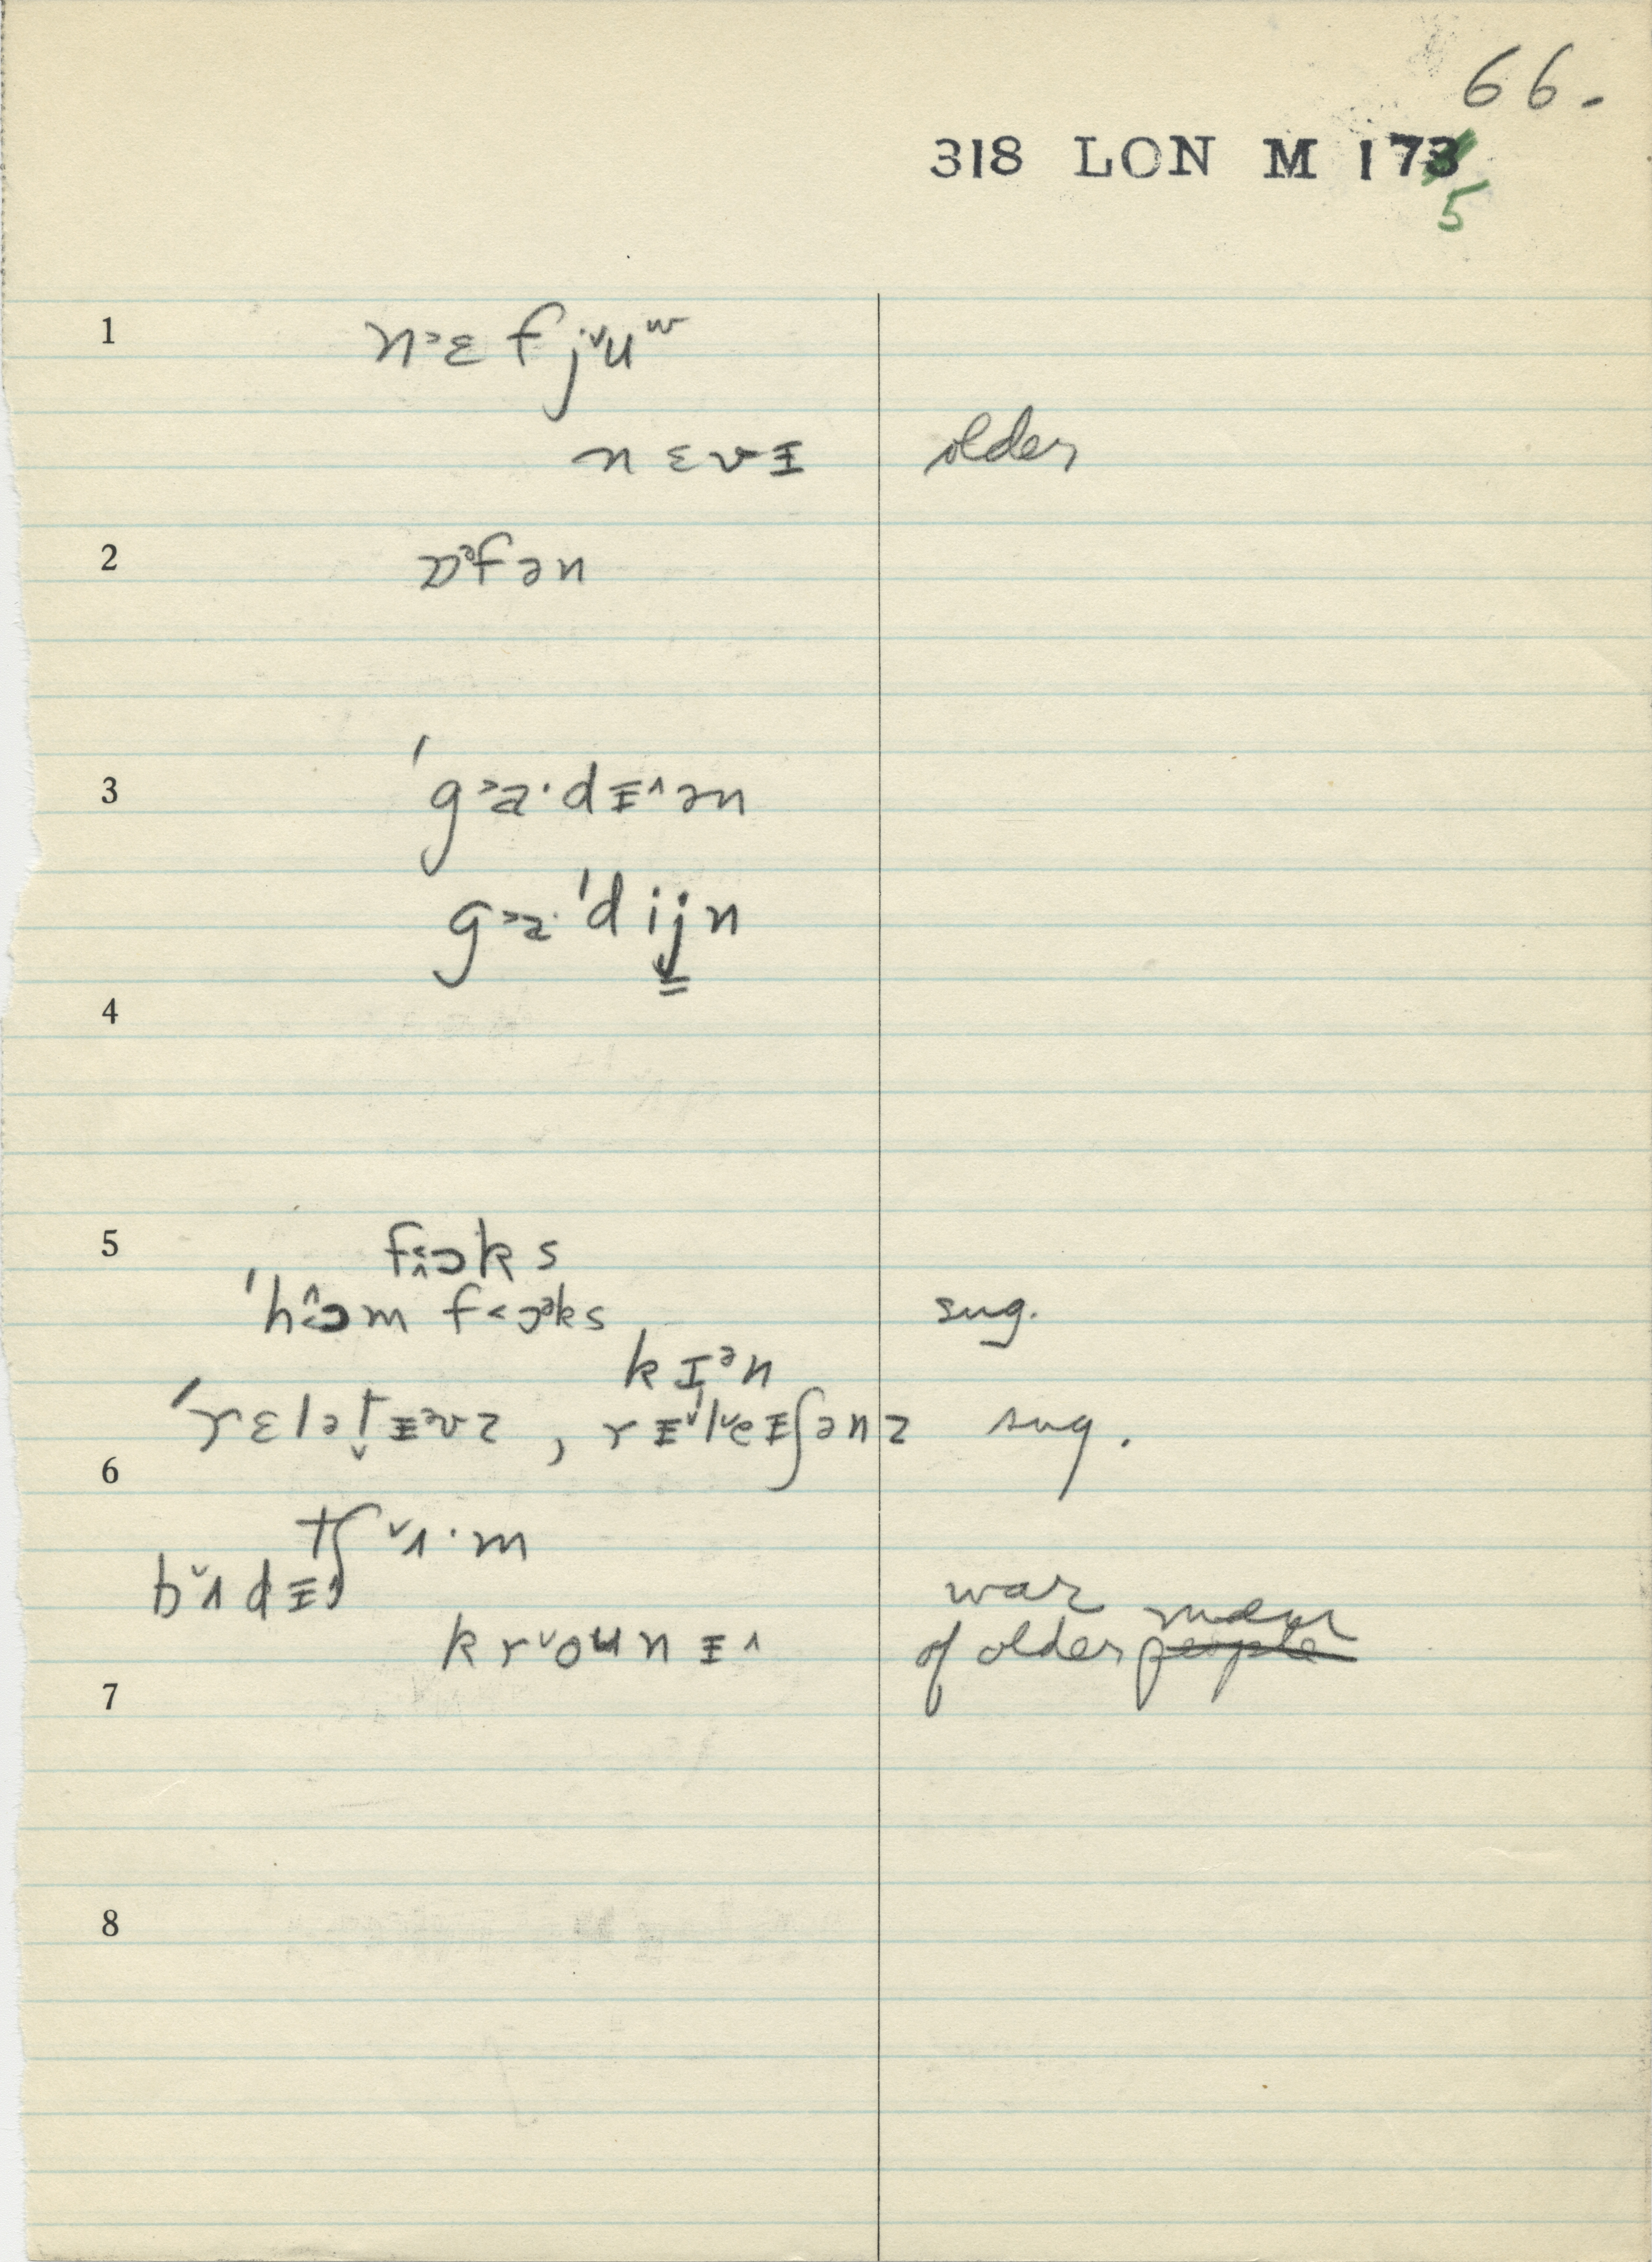 66.
318 LON M 173
5
1 n˃ɛ f jˇuʷ
nɛvɪ older
2 ɒᵊfən
3 ˈg˃a·dɪ^ən
g˃a·ˈdijn
4
5 f<^ɔks
ˈh<^ɔm f<ɔᵊks sug.
kɪᵊn
ˈrɛlət̬ɪᵊvz , rɪˇˈlˇeɪʃənz sug.
6
tʃˇɪ·m
bˇʌdɪ^
krˇounɪ^ war
of older men people
7
8